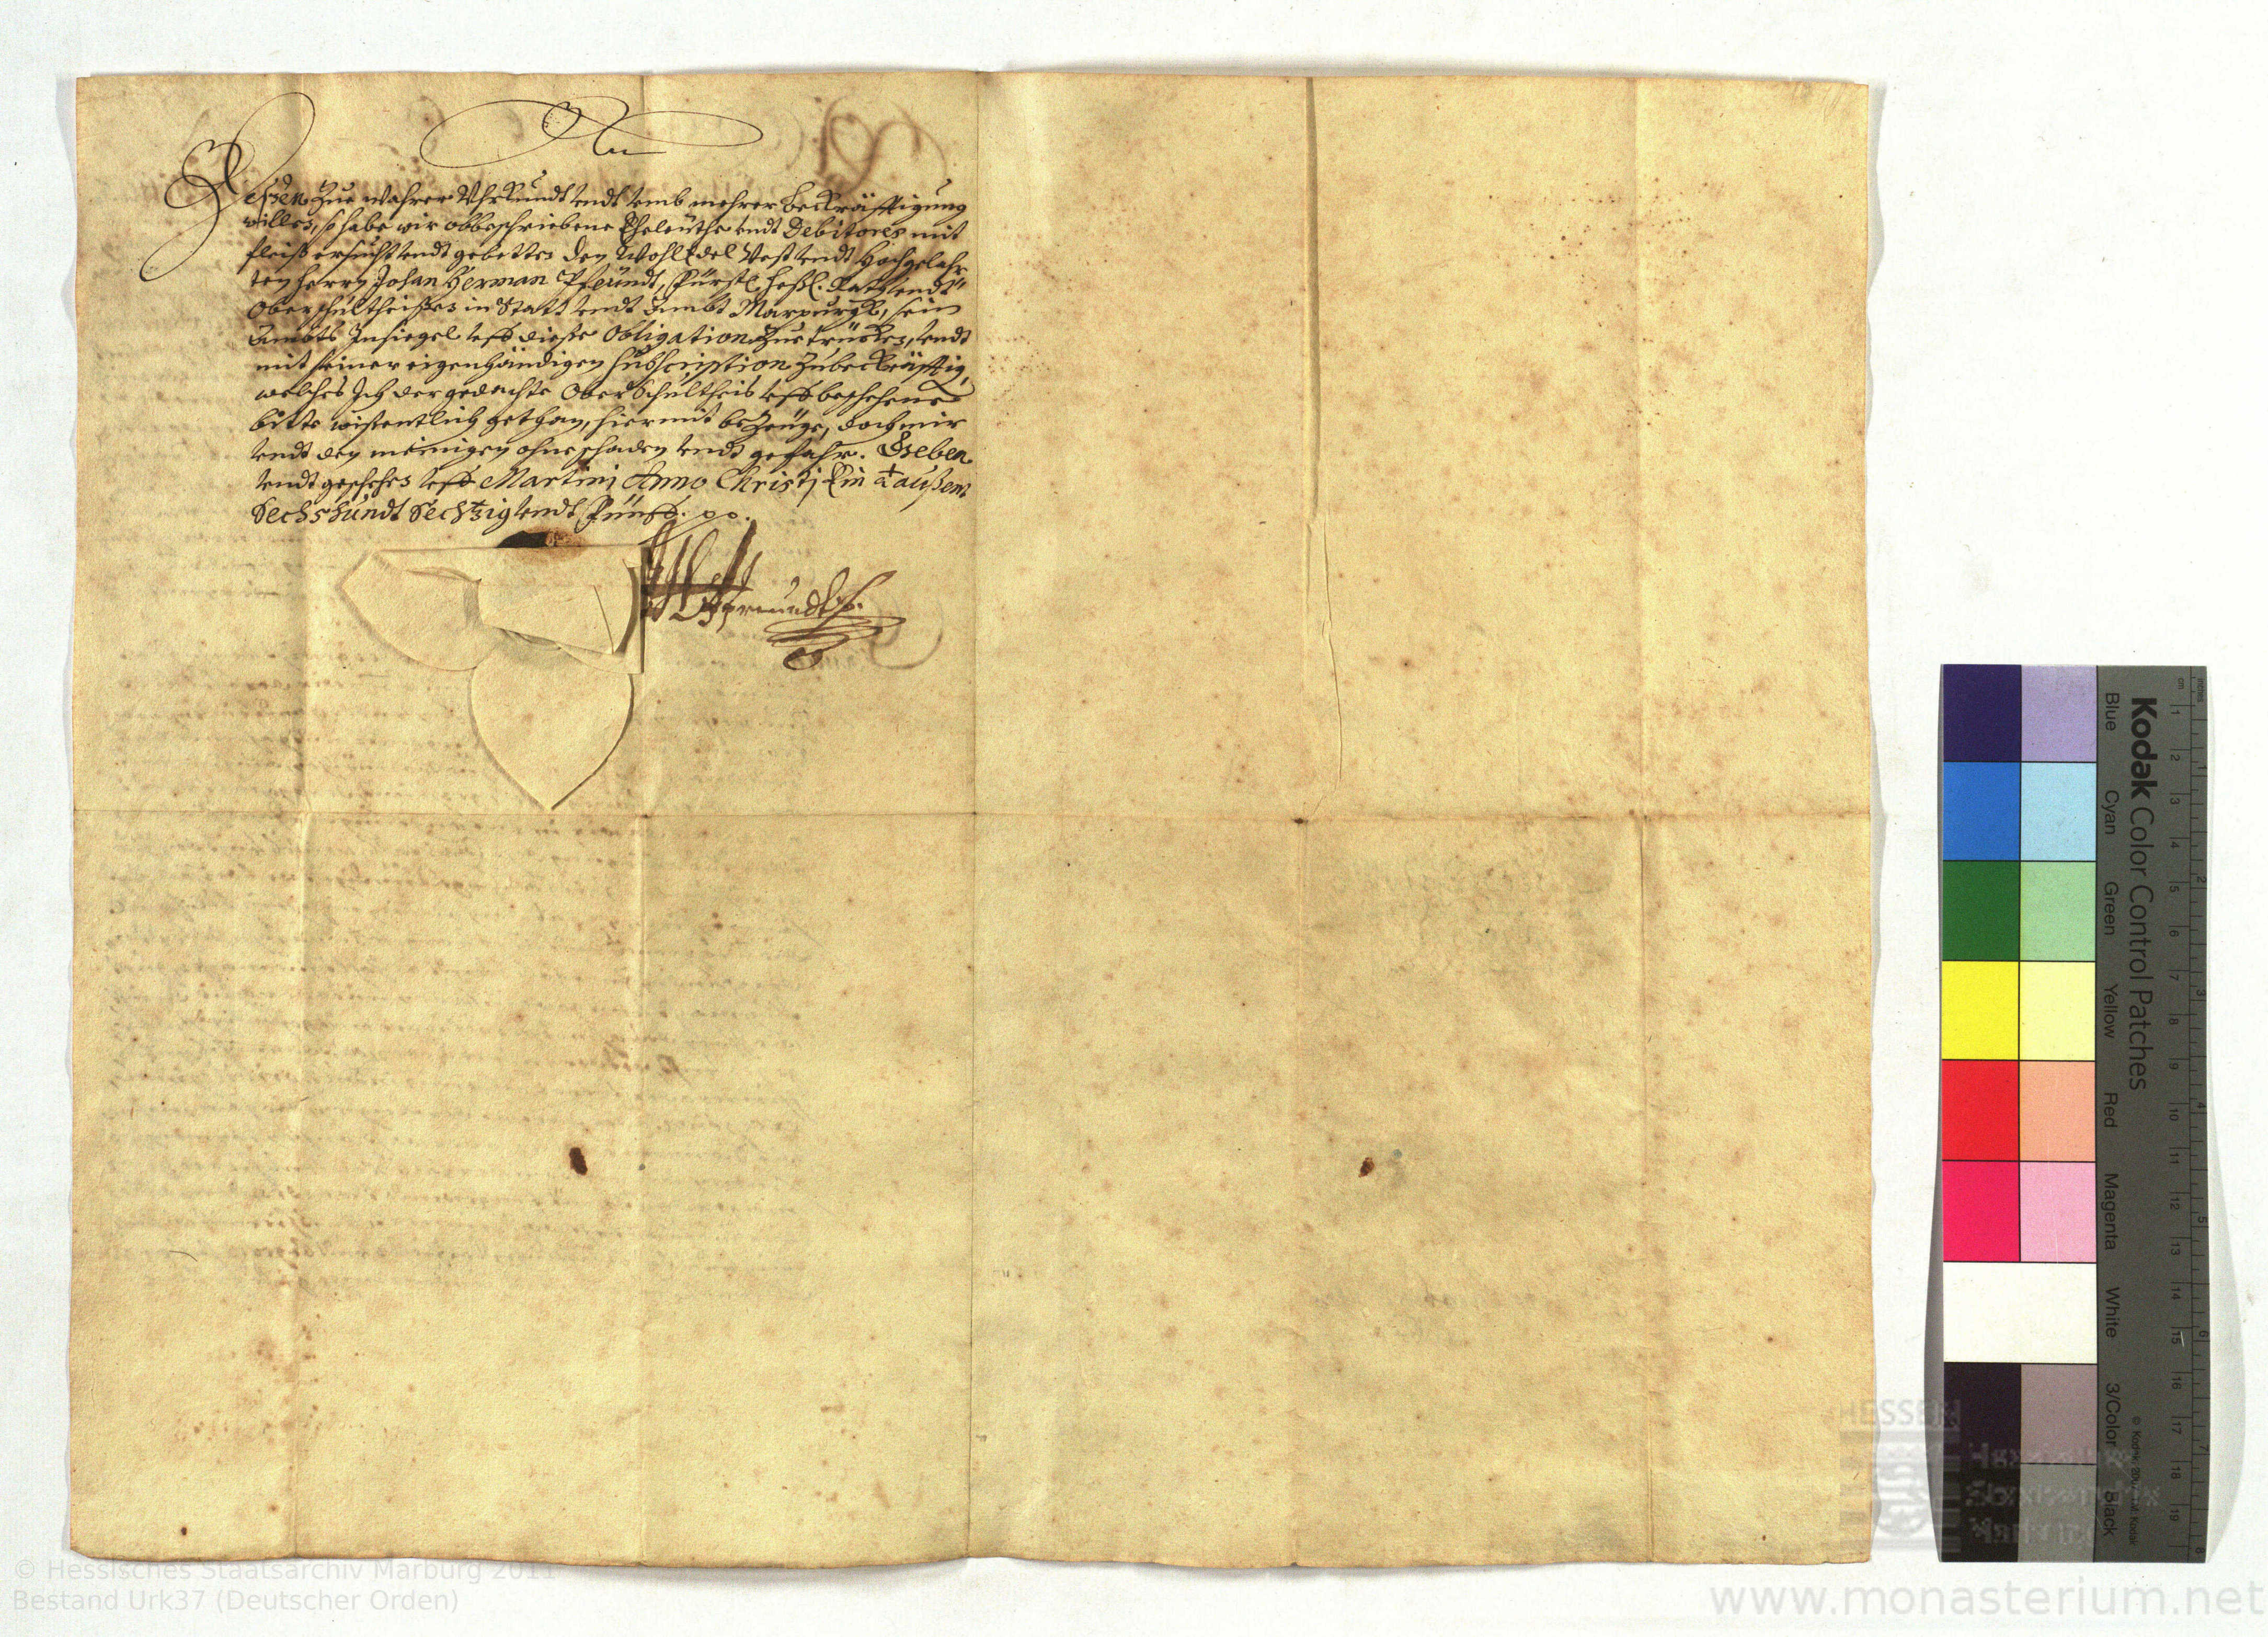 Deßen Zue wahrer Uhrkundt undt umb mehrer beckräfftigung
willen, so habe wir obbeschriebene Eheleuthe undt Debitores mit
fleiß ersucht undt gebetten den WohlEdel Vest undt Hochgelahr
ten Herrn Johan Herman Pfeundt, Fürstl. Heßl. Rath undt
Oberschultheißen in Statt undt Ambt Marpurgk, sein
Ambts Insiegel uff dieße Obligation Zue trücken, undt
mit seiner eigenhändigen subscription Zubeckräfftig,
welches Ich der gedachte OberSchultheis uff beschehene
bitte wißentlich gethan, hiermit beZeuge, doch mir
undt den meinigen ohne schaden undt gefahr. Geben
undt geschehen uff Martini Anno Christi Ein taußent
Sechshundt Sechtzig undt Fünff.
© Hessisches Staatsarchiv Marburg 2011
Bestand Urk37 (Deutscher Orden)
www.monasterium.net
Kodak Color Control Patches
Blue Cyan Green Yellow Red Magenta White 3/Color Black
HESSEN